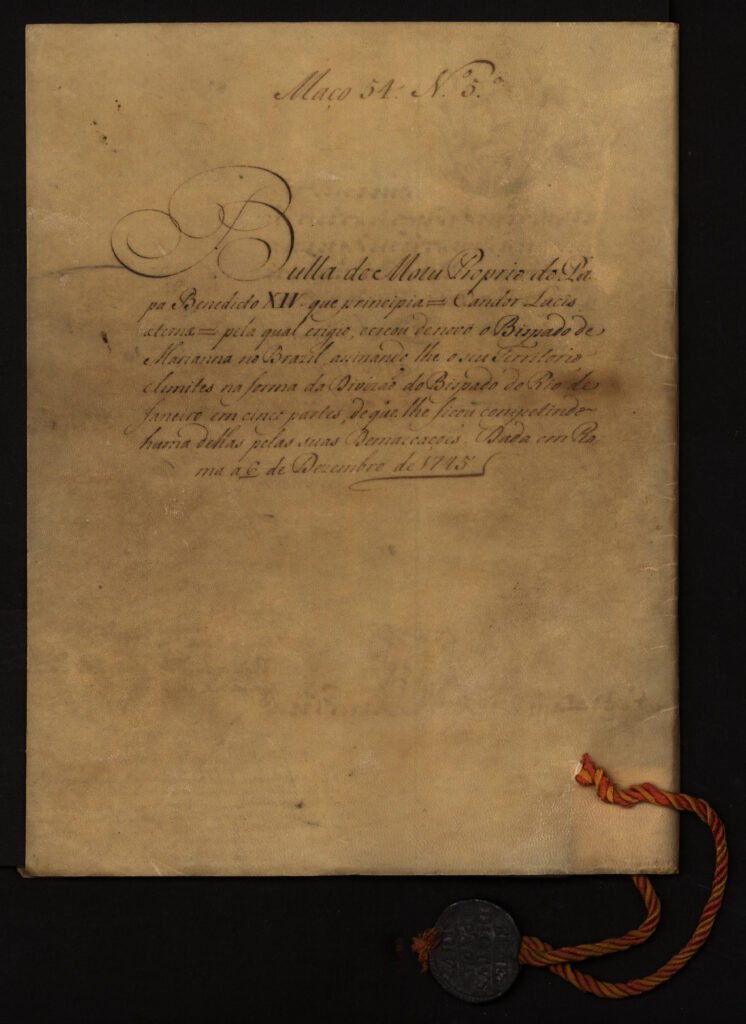 Maço 54. N.º 5.º
Bulla de Motu Proprio do Pa
pa Benedicto XIV que principia = Candor Lucis
æternæ = pela qual erigio, ecreou denovo o Bispado de
Marianna no Brazil, asinando lhe o seu Territorio
elimites na forma da Divizaõ do Bispado do Rio de
Janeiro em cinco partes, de que lhe ficou competindo
huma dellas pelas suas Demarcaçoẽs. Dada em Ro
ma a 6 de Dezembro de 1745